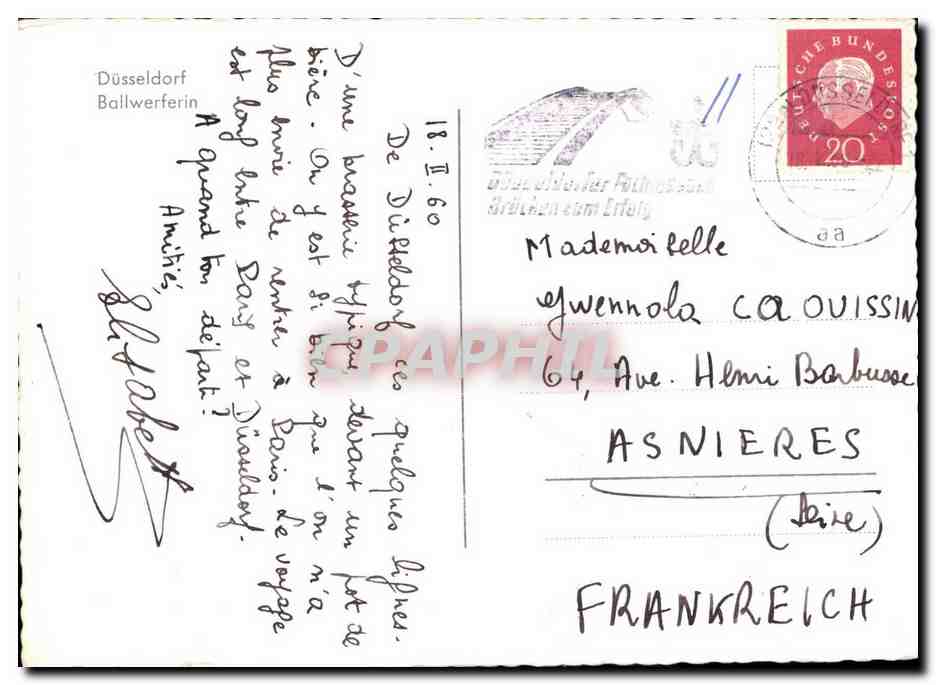 Düsseldorf
Ballwerferin
18.II.60
De Düsseldorf ces quelques lignes.
D'une brasserie typique, devant un pot de
bière. On y est si bien que l'on n'a
plus envie de rentrer à Paris. Le voyage
est long entre Paris et Düsseldorf.
A quand ton départ?
Amitiés,
Düsseldorfer
Brücken zum Erfolg
DEUTSCHE BUNDESPOST
20
DÜSSELDORF
aa
Mademoiselle
Gwennola CAOUISSIN
64, Ave. Henri Barbusse
ASNIERES
(Seine)
FRANKREICH
CPAPHIL